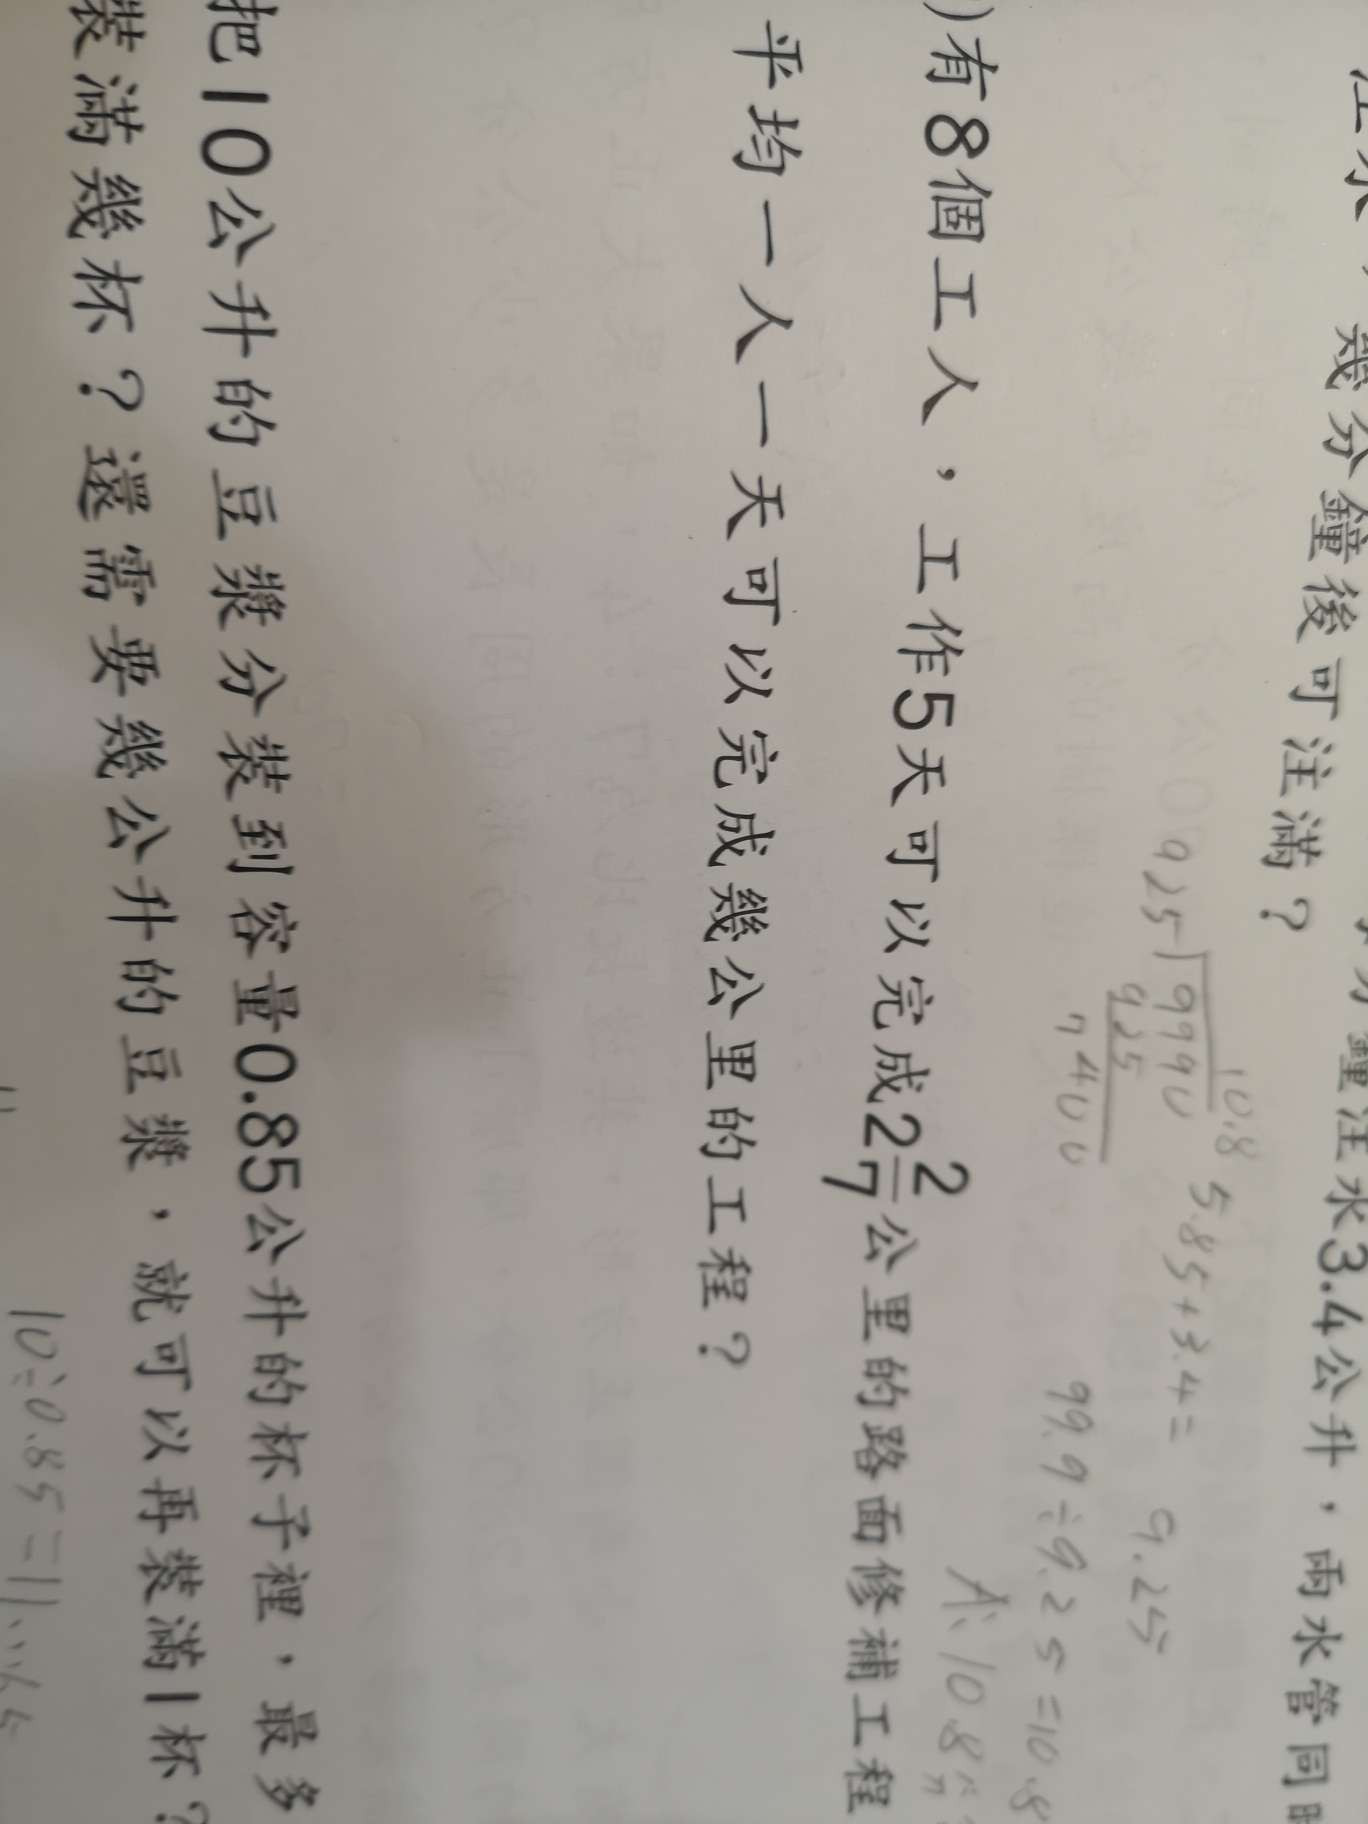 注水3.4公升，兩水管同時
幾分鐘後可注滿？
10.8
925)9990
925
7400
5.85+3.4=
9.25
99.9÷9.25=10.8
A:10.8
)有8個工人，工作5天可以完成2 2/7公里的路面修補工程
平均一人一天可以完成幾公里的工程？
把10公升的豆漿分裝到容量0.85公升的杯子裡，最多
裝滿幾杯？還需要幾公升的豆漿，就可以再裝滿1杯？
10÷0.85=11